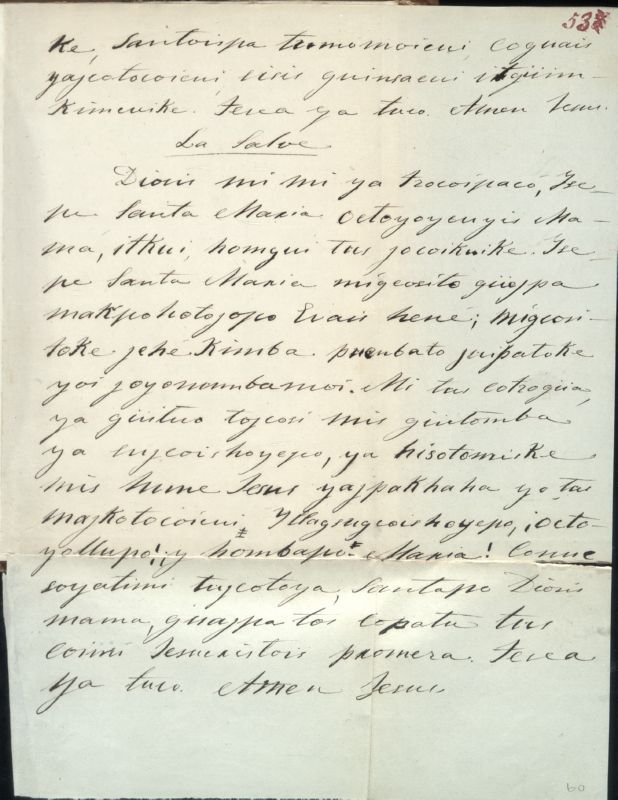 53
ke, Santoispa tumomoicui, coguais
yajcotocoicui, sisis guinsacui
kimcuike. Jesca ya tuco. Amen Jesus.
La Salve
Diosis mi mi ya trocoipaco, Ise-
pe Santa Maria Octoyoyenyis Ma-
ma, itkui, homgui tus jocoiknike. Ise-
pe Santa Maria migcosito güajpa
makpohotojopo Evais hene; migcosi-
toke jehe kimba pucubato juipatoke
yoi joyonumbamoi. Mi tus cotrogüa,
ya güituo tojcosi mis güitomba
ya sujcoishoyepo, ya hisotomiske
mis hune Jesus yajpakhaha yo tas
majkotocoicui Yllagsugcoishoyepo, ¡octo-
yollupo!, ¡y hombapo Maria! Conue
soyatimi tuycotoya, Santapo Diosis
mama, guajpa tos copatu tus
coimi Jesucristois promera. Jesca
ya tuco. Amen Jesus
60